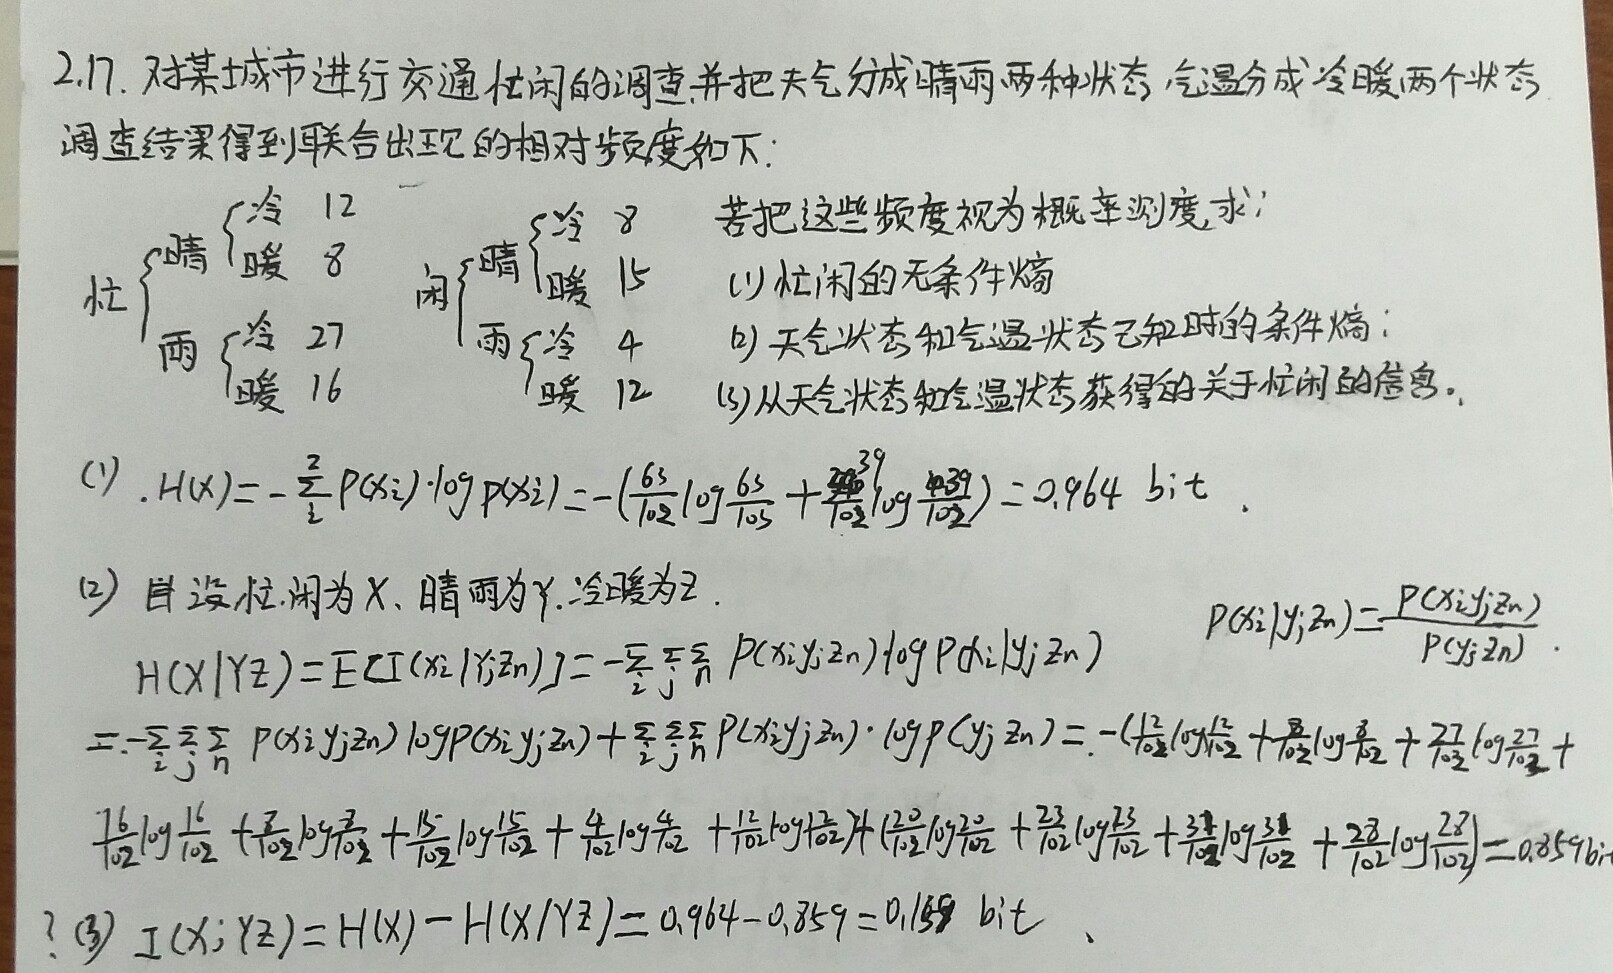 2.17. 对某城市进行交通忙闲的调查,并把天气分成晴雨两种状态,气温分成冷暖两个状态
调查结果得到联合出现的相对频度如下:
忙 { 晴 { 冷 12 暖 8 雨 { 冷 27 暖 16
闲 { 晴 { 冷 8 暖 15 雨 { 冷 4 暖 12
若把这些频度视为概率测度,求:
(1) 忙闲的无条件熵
(2) 天气状态和气温状态已知时的条件熵;
(3) 从天气状态和气温状态获得的关于忙闲的信息。
(1). H(X)=-∑P(xi)·log p(xi)=-(63/102 log 63/103 + 39/102 log 39/102)=0.964 bit.
(2) 设忙.闲为X、晴雨为Y.冷暖为Z.
P(xi|yjzn)=P(xiyjzn)/P(yjzn).
H(X|YZ)=E[I(xi|yjzn)]=-∑i∑j∑n P(xiyjzn)log P(xi|yjzn)
=-∑i∑j∑n P(xiyjzn)logP(xiyjzn)+∑i∑j∑n P(xiyjzn)·logP(yjzn)=-(12/102 log 12/102 + 8/102 log 8/102 + 27/102 log 27/102 +
16/102 log 16/102 + 8/102 log 8/102 + 15/102 log 15/102 + 4/102 log 4/102 + 12/102 log 12/102)+(20/102 log 20/102 + 23/102 log 23/102 + 31/102 log 31/102 + 28/102 log 28/102)=0.859bit
? (3) I(X;YZ)=H(X)-H(X/YZ)=0.964-0.859=0.159 bit.